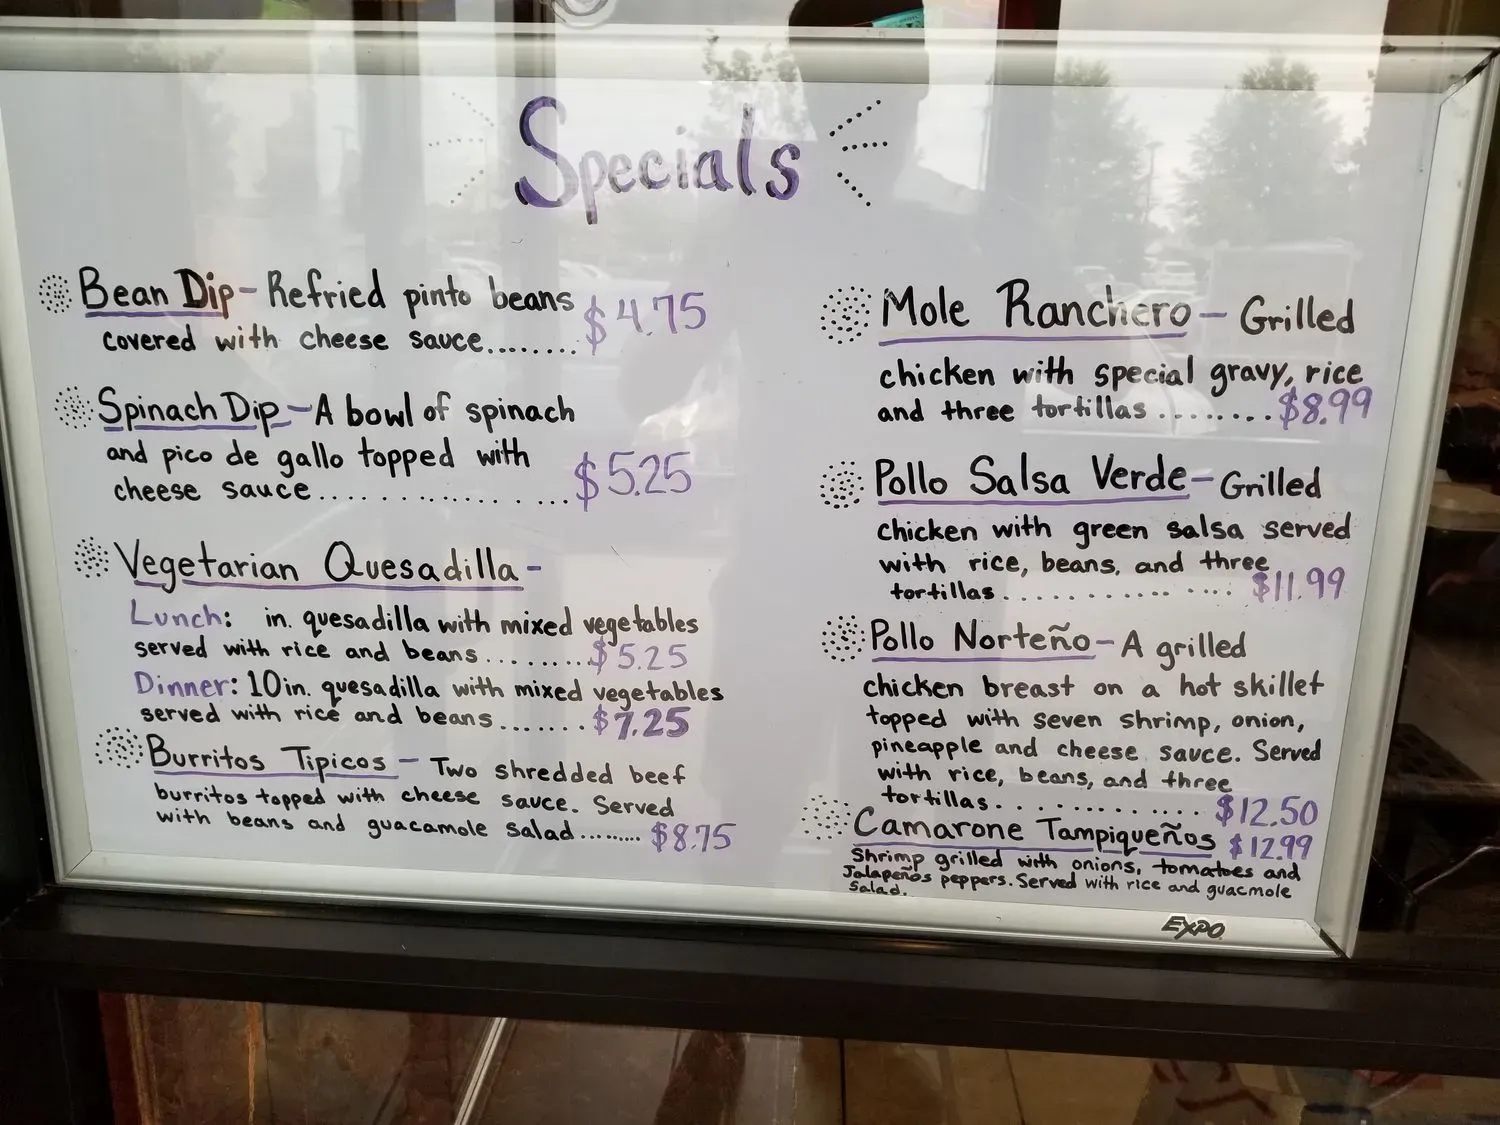 Specials
Bean Dip - Refried pinto beans
covered with cheese sauce........ $4.75
Spinach Dip - A bowl of spinach
and pico de gallo topped with
cheese sauce................... $5.25
Vegetarian Quesadilla -
Lunch: in. quesadilla with mixed vegetables
served with rice and beans........ $5.25
Dinner: 10in. quesadilla with mixed vegetables
served with rice and beans....... $7.25
Burritos Tipicos - Two shredded beef
burritos topped with cheese sauce. Served
with beans and guacamole salad......... $8.75
Mole Ranchero - Grilled
chicken with special gravy, rice
and three tortillas ........ $8.99
Pollo Salsa Verde - Grilled
chicken with green salsa served
with rice, beans, and three
tortillas................ $11.99
Pollo Norteño - A grilled
chicken breast on a hot skillet
topped with seven shrimp, onion,
pineapple and cheese sauce. Served
with rice, beans, and three
tortillas.............. $12.50
Camarone Tampiqueños $12.99
Shrimp grilled with onions, tomatoes and
Jalapeños peppers. Served with rice and guacmole
Salad.
EXPO